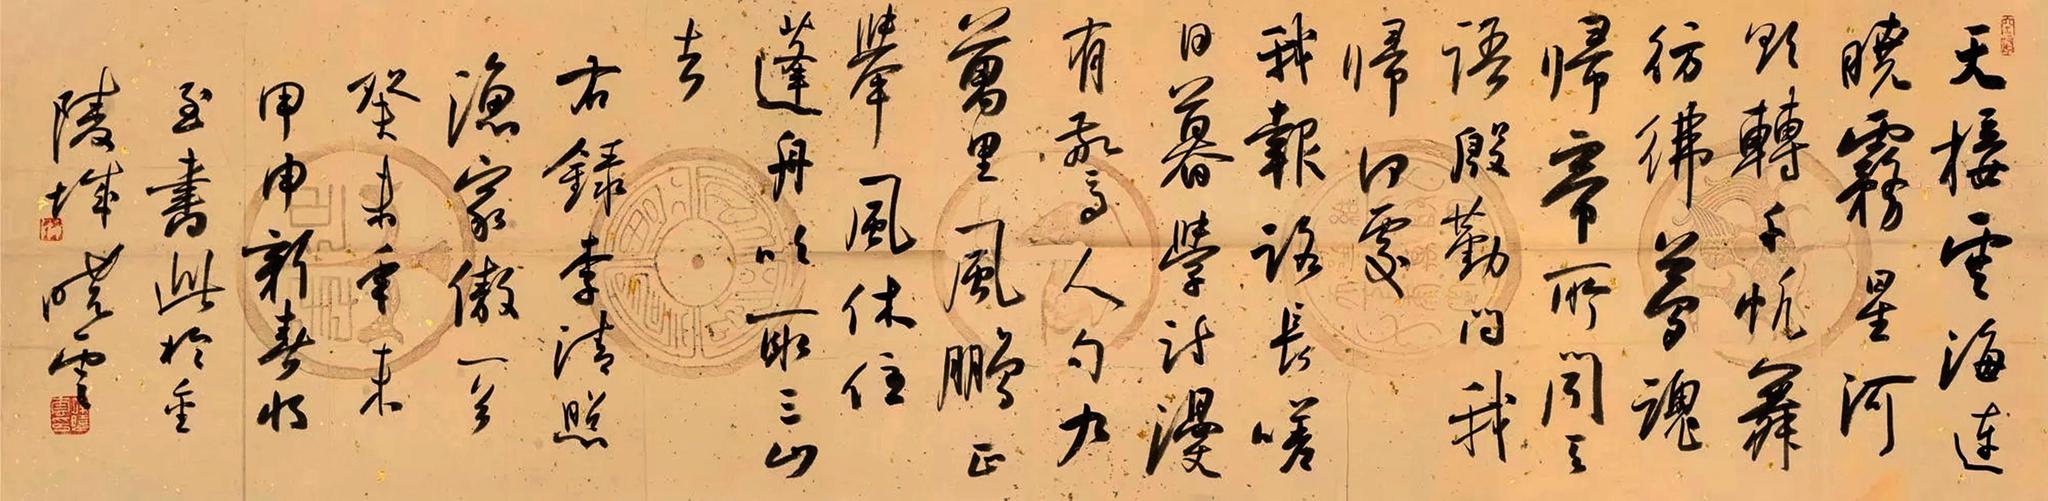 天接雲海連
曉霧星河
欲轉千帆舞
彷彿夢魂
歸帝所聞天
語殷勤問我
歸何處
我報路長嗟
日暮學詩漫
有驚人句九
萬里風鵬正
舉風休住
蓬舟吹取三山
去
右錄李清照
漁家傲一首
癸未年末
甲申新春將
至書此於金
陵城曉雲